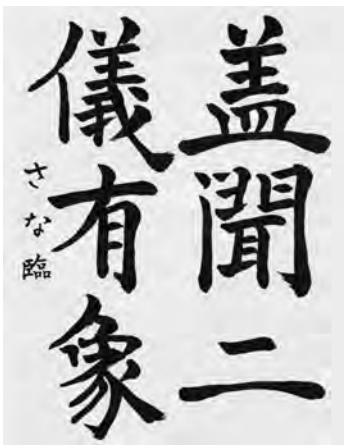 盖聞二
儀有象
さな臨